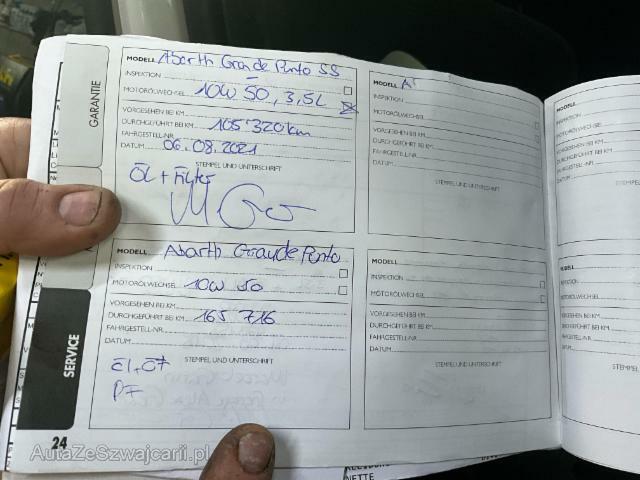 GARANTIE
SERVICE
MODELL Abarth Grande Punto SS
INSPEKTION -
MOTORÖLWECHSEL 10W 50, 3,5L
VORGESEHEN BEI KM
DURCHGEFÜHRT BEI KM 105'320km
FAHRGESTELL-NR.
DATUM 06.08.2021
STEMPEL UND UNTERSCHRIFT
ÖL + Filter
MODELL Abarth Grande Punto
INSPEKTION
MOTORÖLWECHSEL 10W 50
VORGESEHEN BEI KM
DURCHGEFÜHRT BEI KM 165 716
FAHRGESTELL-NR.
DATUM
STEMPEL UND UNTERSCHRIFT
Öl + ÖF
PF
24
MODELL
INSPEKTION
MOTORÖLWECHSEL
VORGESEHEN BEI KM
DURCHGEFÜHRT BEI KM
FAHRGESTELL-NR.
DATUM
STEMPEL UND UNTERSCHRIFT
MODELL
INSPEKTION
MOTORÖLWECHSEL
VORGESEHEN BEI KM
DURCHGEFÜHRT BEI KM
FAHRGESTELL-NR.
DATUM
STEMPEL UND UNTERSCHRIFT
MODELL
INSPEKTION
MOTORÖLWECHSEL
VORGESEHEN BEI KM
DURCHGEFÜHRT BEI KM
FAHRGESTELL-NR.
DATUM
INSPEKTION
MOTORÖLWECHSEL
VORGESEHEN BEI KM
DURCHGEFÜHRT BEI KM
FAHRGESTELL-NR.
DATUM
AutaZeSzwajcarii.pl